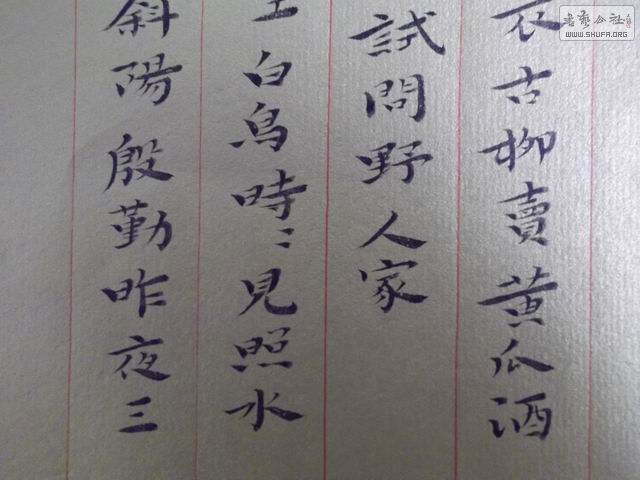 衣古柳賣黄瓜酒
試問野人家
白鳥時〻見照水
斜陽殷勤昨夜三
書藝公社
WWW.SHUFA.ORG